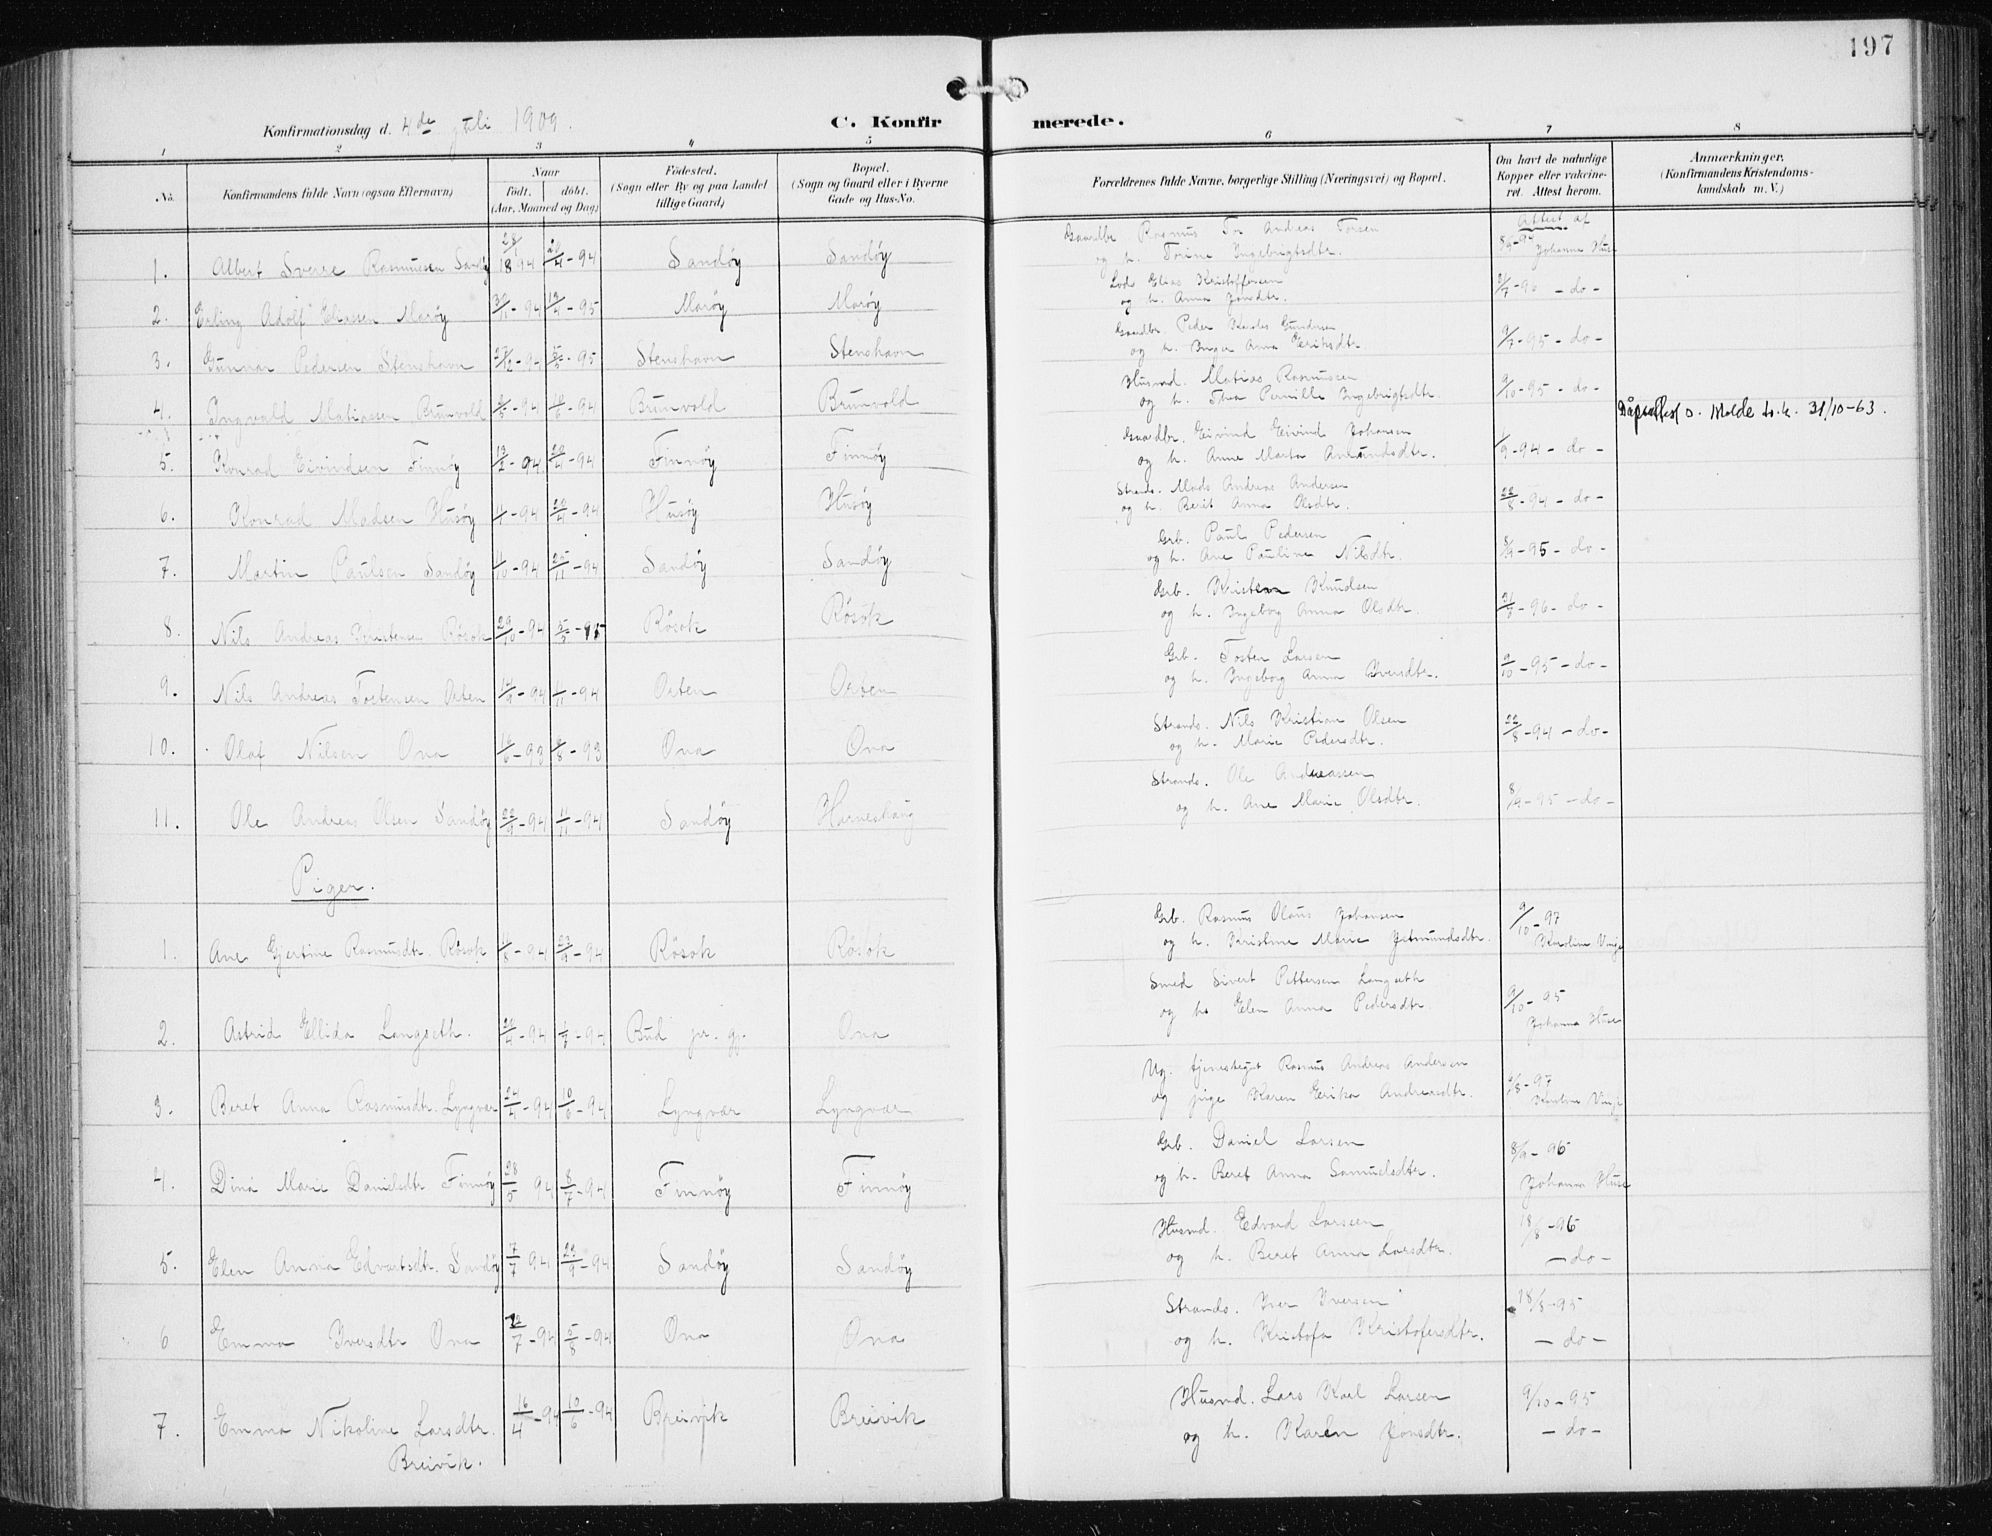 197
Konfirmationsdag d. 4de Juli 1909.
C. Konfirmerede.
1 2 3 4 5 6 7 8
No.
Konfirmandens fulde Navn (ogsaa Efternavn)
Naar
født. døbt.
(Aar, Maaned og Dag)
Födested.
(Sogn eller By og paa Landet
tillige Gaard)
Bopæl.
(Sogn og Gaard eller i Byerne
Gade og Hus-No.
Forældrenes fulde Navne, borgerlige Stilling (Næringsvei) og Bopæl.
Om havt de naturlige
Kopper eller vakcine-
ret. Attest herom.
Anmærkninger.
(Konfirmandens Kristendoms-
kundskab m. V.)
1. Albert Sverre Rasmussen Sandøy 28/1 1894 -94 Sandøy Sandøy Gaardbr. Rasmus Tor Andreas Torsen Attest af
og h. Torine Ingebrigtsdtr. Johanna Huse
2. Erling Adolf Eliassen Marøy 30/11-94 -95 Marøy Marøy Lods Elias Kristoffersen -96 -do-
og h. Anna Jonsdtr.
3. Gunnar Pedersen Stenshavn 27/12-94 5/5-95 Stenshavn Stenshavn Gaardbr. Peder Gundersen 9/7-95 -do-
og h. Inger Anna Eriksdtr.
4. Ingvald Matiassen Brunvold -94 -94 Brunvold Brunvold Husmd. Matias Rasmussen 9/10-95 -do-
og h. Thea Pernille Ingebrigtsdtr. Dåpsattest s. Molde tr.k. 31/10-63.
5. Konrad Eivindsen Finnøy 13/2-94 -94 Finnøy Finnøy Gaardbr. Eivind Eivind Johansen 1/9-94 -do-
og h. Anne Marta Amundsdtr.
6. Konrad Madsen Husøy -94 -94 Husøy Husøy Strands. Mads Andreas Andersen 22/8-94 -do-
og h. Berit Anna Olsdtr.
7. Martin Paulsen Sandøy -94 25/11-94 Sandøy Sandøy Grb. Paul Pedersen 8/9-95 -do-
og h. Ane Pauline Nilsdtr.
8. Nils Andreas Kristensen Rösok 29/10-94 5/5-95 Rösok Rösok Grb. Kristen Knudsen -96 -do-
og h. Ingeborg Anna Olsdtr.
9. Nils Andreas Tostensen Orten 14/9-94 -94 Orten Orten Grb. Tosten Larsen 9/10-95 -do-
og h. Ingeborg Anna Iversdtr.
10. Olaf Nilsen Ona -93 -93 Ona Ona Strands. Nils Kristian Olsen 22/8-94 -do-
og h. Marie Pedersdtr.
11. Ole Andreas Olsen Sandøy 22/9-94 -94 Sandøy Harneshaug Strands. Ole Andreassen 8/9-95 -do-
og h. Ane Marie Olsdtr.
Piger.
1. Ane Gjertine Rasmusdtr. Rösok -94 23/9-94 Rösok Rösok Grb. Rasmus Olaus Johansen 9/10-97
og h. Kristine Marie Jetmundsdtr. Karoline Vinje
2. Astrid Ellida Langseth. -94 -94 Bud pr. gj. Ona Smed Sivert Pettersen Langseth 9/10-95
og h. Elen Anna Pedersdtr. Johanna Huse
3. Beret Anna Rasmusdtr. Lyngvær 24/4-94 10/6-94 Lyngvær Lyngvær Ug. tjenestegut Rasmus Andreas Andersen -97
og pige Karen Erika Andreasdtr. Karoline Vinje
4. Dina Marie Danielsdtr Finnöy 28/5 94 8/7-94 Finnöy Finnöy Grb. Daniel Larsen 8/9-96
og h. Beret Anna Samuelsdtr. Johanna Huse
5. Elen Anna Edvartsdtr. Sandöy 7/7 94 23/9-94 Sandöy Sandöy Husmd. Edvard Larssen 18/8-96
og h. Beret Anna Larsdtr. -do-
6 Emma Iversdtr Ona /7-94 5/8-94 Ona Ona Strands. Iver Iversen 18/8-95
og h. Kristofa Kristofersdtr. -do-
7. Emma Nikoline Larsdtr. 16/4-94 10/6-94 Breivik Breivik Husmd. Lars Karl Larsen 9/10-95
Breivik. og h. Karen Jonsdtr. -do-